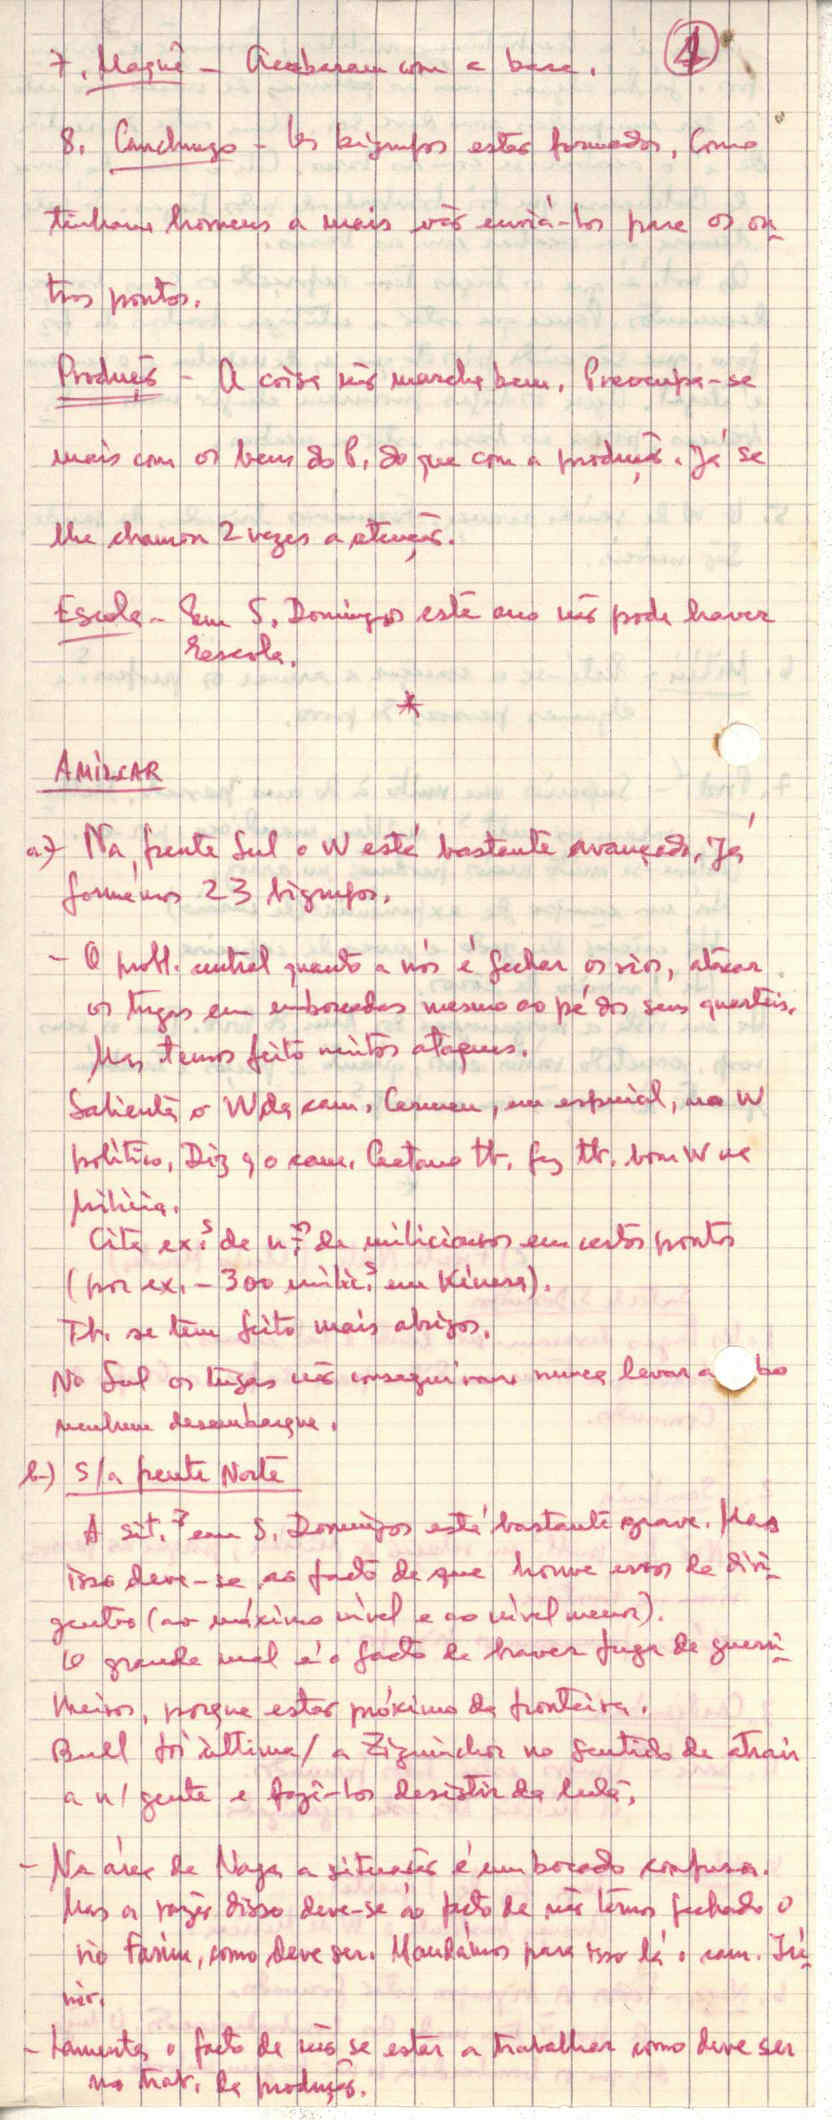 4
7. Maquê - Acabaram com a base.
8. Canchungo - Os bigrupos estão formados. Como
tinham homens a mais vão enviá-los para os ou-
tros pontos.
Produção - A coisa não marcha bem. Preocupa-se
mais com os bens do P. do que com a produção. Já se
lhe chamou 2 vezes a atenção.
Escola - Em S. Domingos este ano não pode haver
escola.
*
AMÍLCAR
a) Na frente Sul o W está bastante avançado. Já
formámos 23 bigrupos.
- O probl. central quanto a nós é fechar os rios, atacar
os tugas em emboscadas mesmo ao pé dos seus quarteis.
Mas temos feito muitos ataques.
Salienta o W da cam. Carmen, em especial, no W
político. Diz q o cam. Caetano tb. fez tb. bom W na
milícia.
Cita ex.s de n.o de milicianos em certos pontos
(por ex. - 300 milic.s em Kinera).
Tb. se tem feito mais abrigos.
No Sul os tugas não conseguiram nunca levar a bo
nenhum desembarque.
b) S/a frente Norte
A sit.ão em S. Domingos está bastante grave. Mas
isso deve-se ao facto de que houve erros de diri-
gentes (ao máximo nível e ao nível menor).
O grande mal é o facto de haver fuga de guerri-
lheiros, porque estão próximo da fronteira.
Bull foi ùltima/ a Ziguinchor no sentido de atrair
a n/ gente e fazê-los desistir da luta.
- Na área de Naga a situação é um bocado confusa.
Mas a razão disso deve-se ao facto de não têrmos fechado o
rio Farim, como deve ser. Mandámos para isso lá o cam. Jú-
nior.
- Lamenta o facto de não se estar a trabalhar como deve ser
no trab. da produção.